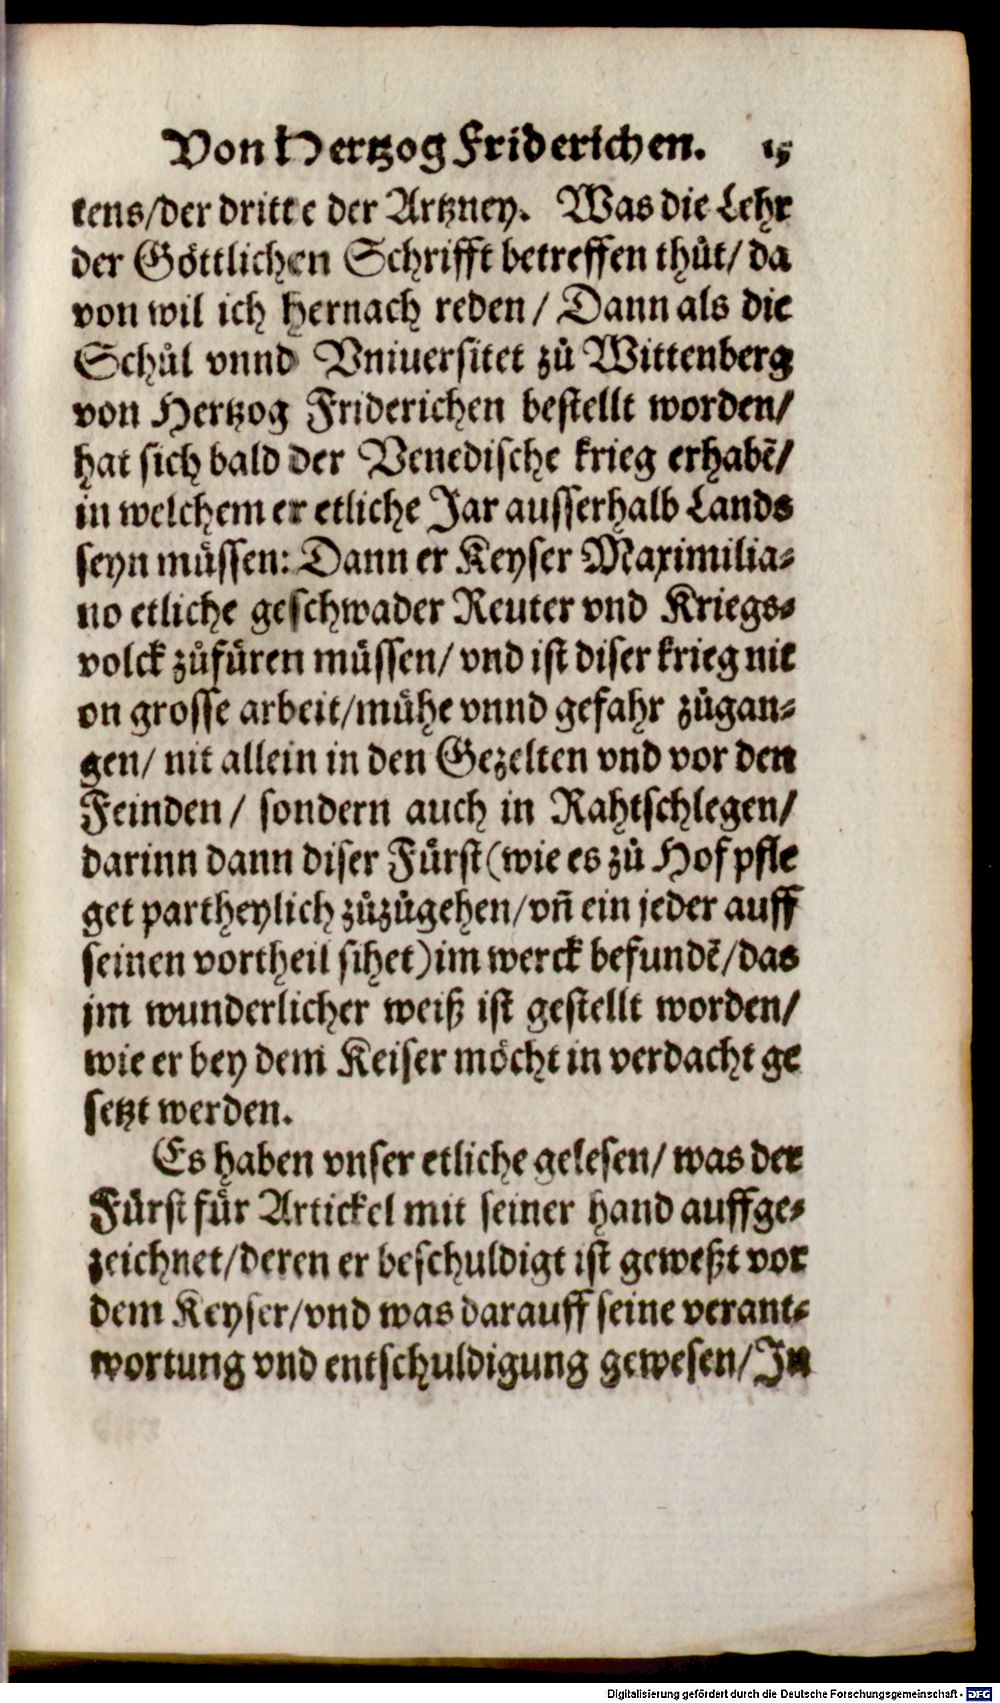 Von Hertzog Friderichen. 15
tens/der dritte der Artzney. Was die Lehr
der Göttlichen Schrifft betreffen thůt/ da
von wil ich hernach reden / Dann als die
Schůl vnnd Vniuersitet zů Wittenberg
von Hertzog Friderichen bestellt worden/
hat sich bald der Venedische krieg erhabẽ/
in welchem er etliche Jar ausserhalb Lands
seyn müssen: Dann er Keyser Maximilia-
no etliche geschwader Reuter vnd Kriegs-
volck zůfüren müssen/ vnd ist diser krieg nit
on grosse arbeit/mühe vnnd gefahr zůgan-
gen/ nit allein in den Gezelten vnd vor den
Feinden / sondern auch in Rahtschlegen/
darinn dann diser Fürst (wie es zů Hof pfle
get partheylich zůzůgehen/vñ ein jeder auff
seinen vortheil sihet) im werck befundẽ/das
jm wunderlicher weiß ist gestellt worden/
wie er bey dem Keiser möcht in verdacht ge
setzt werden.
Es haben vnser etliche gelesen/ was der
Fürst für Artickel mit seiner hand auffge-
zeichnet/deren er beschuldigt ist geweßt vor
dem Keyser/vnd was darauff seine verant-
wortung vnd entschuldigung gewesen/Jn
Digitalisierung gefördert durch die Deutsche Forschungsgemeinschaft - DFG